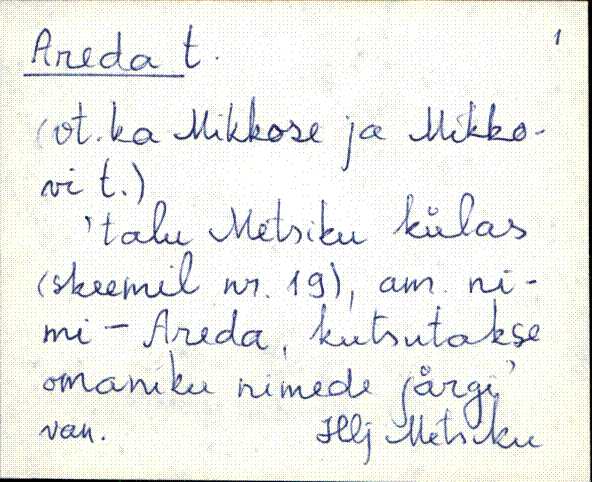 Areda t. 1
(vt. ka Mikkose ja Mikko-
vi t.)
'talu Metsiku külas
(skeemil nr. 19), am. ni-
mi - Areda, kutsutakse
omaniku nimede järgi'
van. Hlj Metsiku